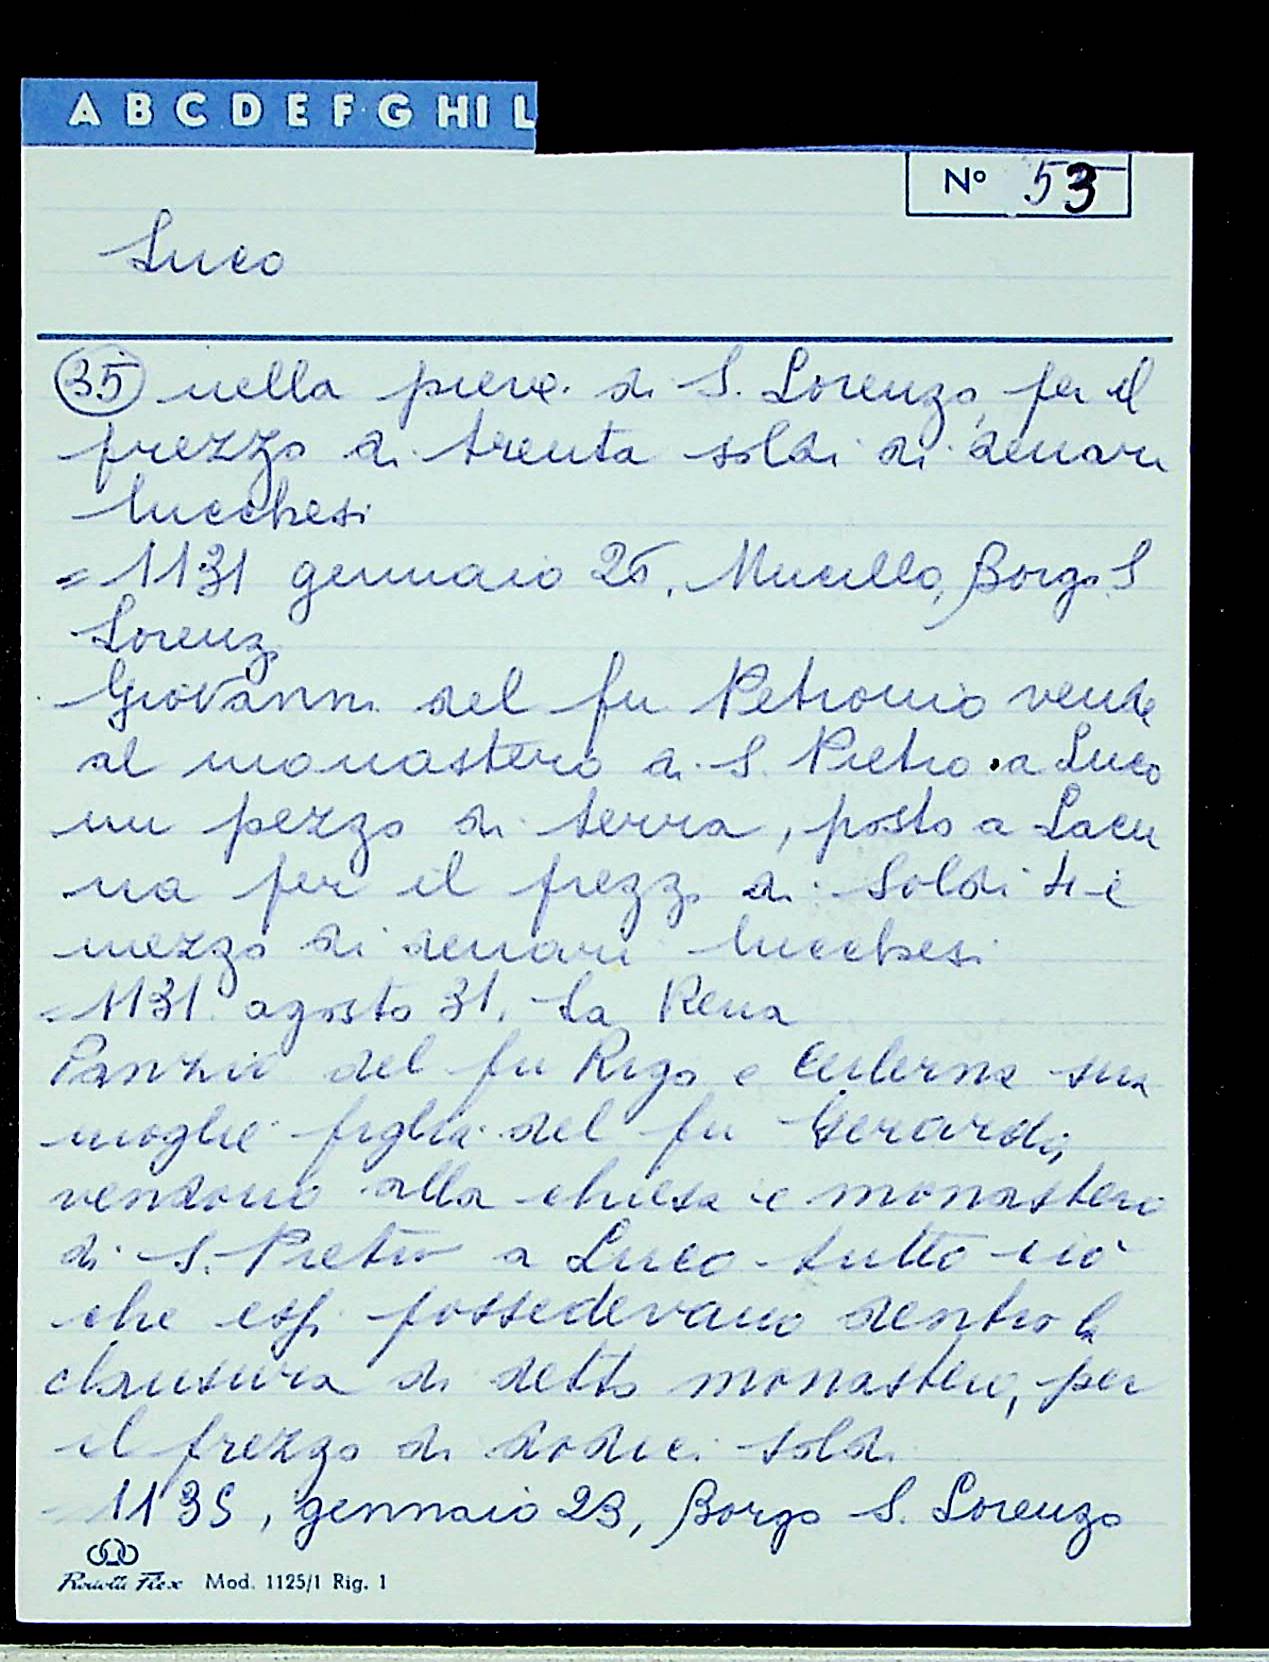 A B C D E F G H I L
N° 53
Luco
35 nella pieve di S. Lorenzo, per il
prezzo di trenta soldi di denari
lucchesi
= 1131 gennaio 26, Mucello, Borgo S
Lorenzo
Giovanni del fu Petronio vende
al monastero di S. Pietro a Luco
un pezzo di terra, posto a Lacu
na per il prezzo di soldi 4 e
mezzo di denari lucchesi
= 1131 agosto 31. La Rena
del fu Rigo e sua
moglie figlia del fu Gerardo,
vendono alla chiesa e monastero
di S. Pietro a Luco tutto ciò
che essi possedevano dentro la
clausura di detto monastero, per
il prezzo di dodici soldi
= 1135, gennaio 23, Borgo S. Lorenzo
Flex Mod. 1125/1 Rig. 1